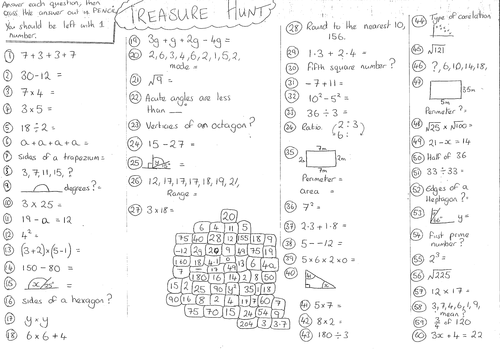 Answer each question, then
cross the answer out in PENCIL
You should be left with 1
number.
TREASURE HUNT
① 7+3+3+7
② 30-12 =
③ 7×4 =
④ 3×5 =
⑤ 18÷2 =
⑥ a+a+a+a =
⑦ sides of a trapezium =
⑧ 3, 7, 11, 15, ?
⑨ degrees?
⑩ 3×25 =
⑪ 19-a = 12
⑫ 4² =
⑬ (3+2)×(5-1) =
⑭ 150-80 =
⑮ x
⑯ sides of a hexagon?
⑰ y × y
⑱ 6×6+4
⑲ 3g+g+2g-4g =
⑳ 2, 6, 3, 4, 6, 2, 1, 5, 2,
mode =
㉑ √9 =
㉒ Acute angles are less
than __
㉓ Vertices of an octagon?
㉔ 15-27 =
㉕
㉖ 12, 17, 17, 17, 18, 19, 21,
Range =
㉗ 3×18 =
20
6 4 11 5
75 40 28 12 155 18 9
-12 29 20 9 49 75 19
160 18 4·1 0 13 6 4a
180 16 14 2 8 50
15 2 25 90 y² 35 1 18
90 16 8 2 4 17 7 60 7
75 70 15 24 54 9
204 3 3·7
㉘ Round to the nearest 10,
156.
㉙ 1·3+2·4 =
㉚ Fifth square number?
㉛ -7+11 =
㉜ 10²-5² =
㉝ 36÷3 =
㉞ Ratio 2:3
6:
㉟ 7m
2m 2m
7m
Perimeter =
area =
㊱ 7² =
㊲ 2·3+1·8 =
㊳ 5--12 =
㊴ 5×6×2×0 =
㊵
㊶ 5×7 =
㊷ 8×2 =
㊸ 180÷3
㊹ Type of correlation
㊺ √121
㊻ ?, 6, 10, 14, 18,
㊼ 35m
5m
Perimeter?
㊽ √25 × √100 =
㊾ 21-x = 14
㊿ Half of 36
51 33÷33 =
52 Edges of a
Heptagon?
53 y =
54 First prime
number?
55 2³ =
56 √225
57 12×17 =
58 3, 7, 4, 6, 1, 9,
mean?
59 3/4 of 120
60 3x+4 = 22